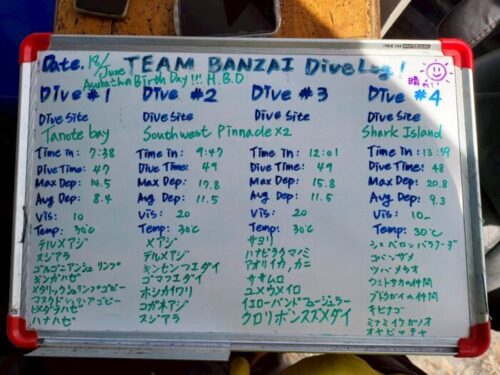 Date. 18/June TEAM BANZAI Dive Log!
Birth Day!!! H.B.D
晴れ!!
Dive #1
Dive Site
Tanote bay
Time in: 7:38
Dive Time: 47
Max Dep: 14.5
Avg Dep: 8.4
Vis: 10
Temp: 30℃
テルメアジ
スジアラ
ゴルゴニアンシュリンプ
ギンガハゼ
メタリックシュリンプゴビー
マスクドシュリンプゴビー
ヒメダテハゼ
ハナハゼ
Dive #2
Dive Site
Southwest Pinnacle x2
Time in: 9:47
Dive Time: 49
Max Dep: 17.8
Avg Dep: 11.5
Vis: 20
Temp: 30℃
メアジ
テルメアジ
キンセンフエダイ
ゴマフエダイ
ホシカイワリ
コガネアジ
スジアラ
Dive #3
Time in: 12:01
Dive Time: 49
Max Dep: 15.8
Avg Dep: 11.5
Vis: 20
Temp: 30℃
サヨリ
ハナビラクマノミ
アオリイカ,カニ
サキムロ
ユメウメイロ
イエローバンドフュージュラー
クロリボンスズメダイ
Dive #4
Dive Site
Shark Island
Time in: 13:59
Dive Time: 48
Max Dep: 20.8
Avg Dep: 9.3
Vis: 10
Temp: 30℃
シェベロンバラクーダ
コバンザメ
ツバメウオ
ウミトサカの仲間
ブドウガイの仲間
キビナゴ
ミナミイケカツオ
オヤビッチャ